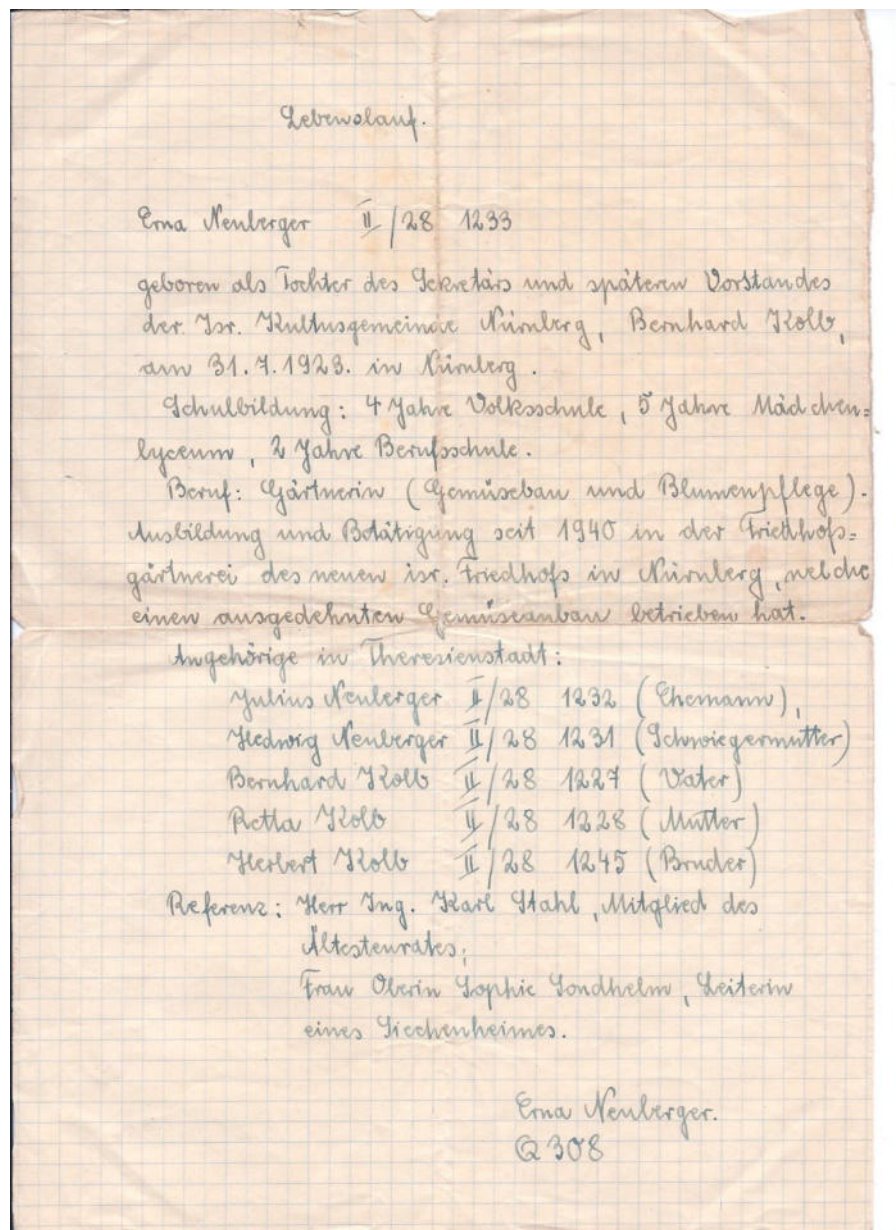 Lebenslauf.
Erna Neuberger II/28 1233
geboren als Tochter des Sekretärs und späteren Vorstandes
der Isr. Kultusgemeinde Nürnberg, Bernhard Kolb,
am 31.7.1923. in Nürnberg.
Schulbildung: 4 Jahre Volksschule, 5 Jahre Mädchen=
lyceum, 2 Jahre Berufsschule.
Beruf: Gärtnerin (Gemüsebau und Blumenpflege).
Ausbildung und Betätigung seit 1940 in der Friedhofs=
gärtnerei des neuen isr. Friedhofs in Nürnberg, welche
einen ausgedehnten Gemüseanbau betrieben hat.
Angehörige in Theresienstadt:
Julius Neuberger II/28 1232 (Ehemann),
Hedwig Neuberger II/28 1231 (Schwiegermutter)
Bernhard Kolb II/28 1227 (Vater)
Retta Kolb II/28 1228 (Mutter)
Herbert Kolb II/28 1245 (Bruder)
Referenz: Herr Ing. Karl Stahl, Mitglied des
Ältestenrates;
Frau Oberin Sophie Sondhelm, Leiterin
eines Siechenheimes.
Erna Neuberger.
Q 308